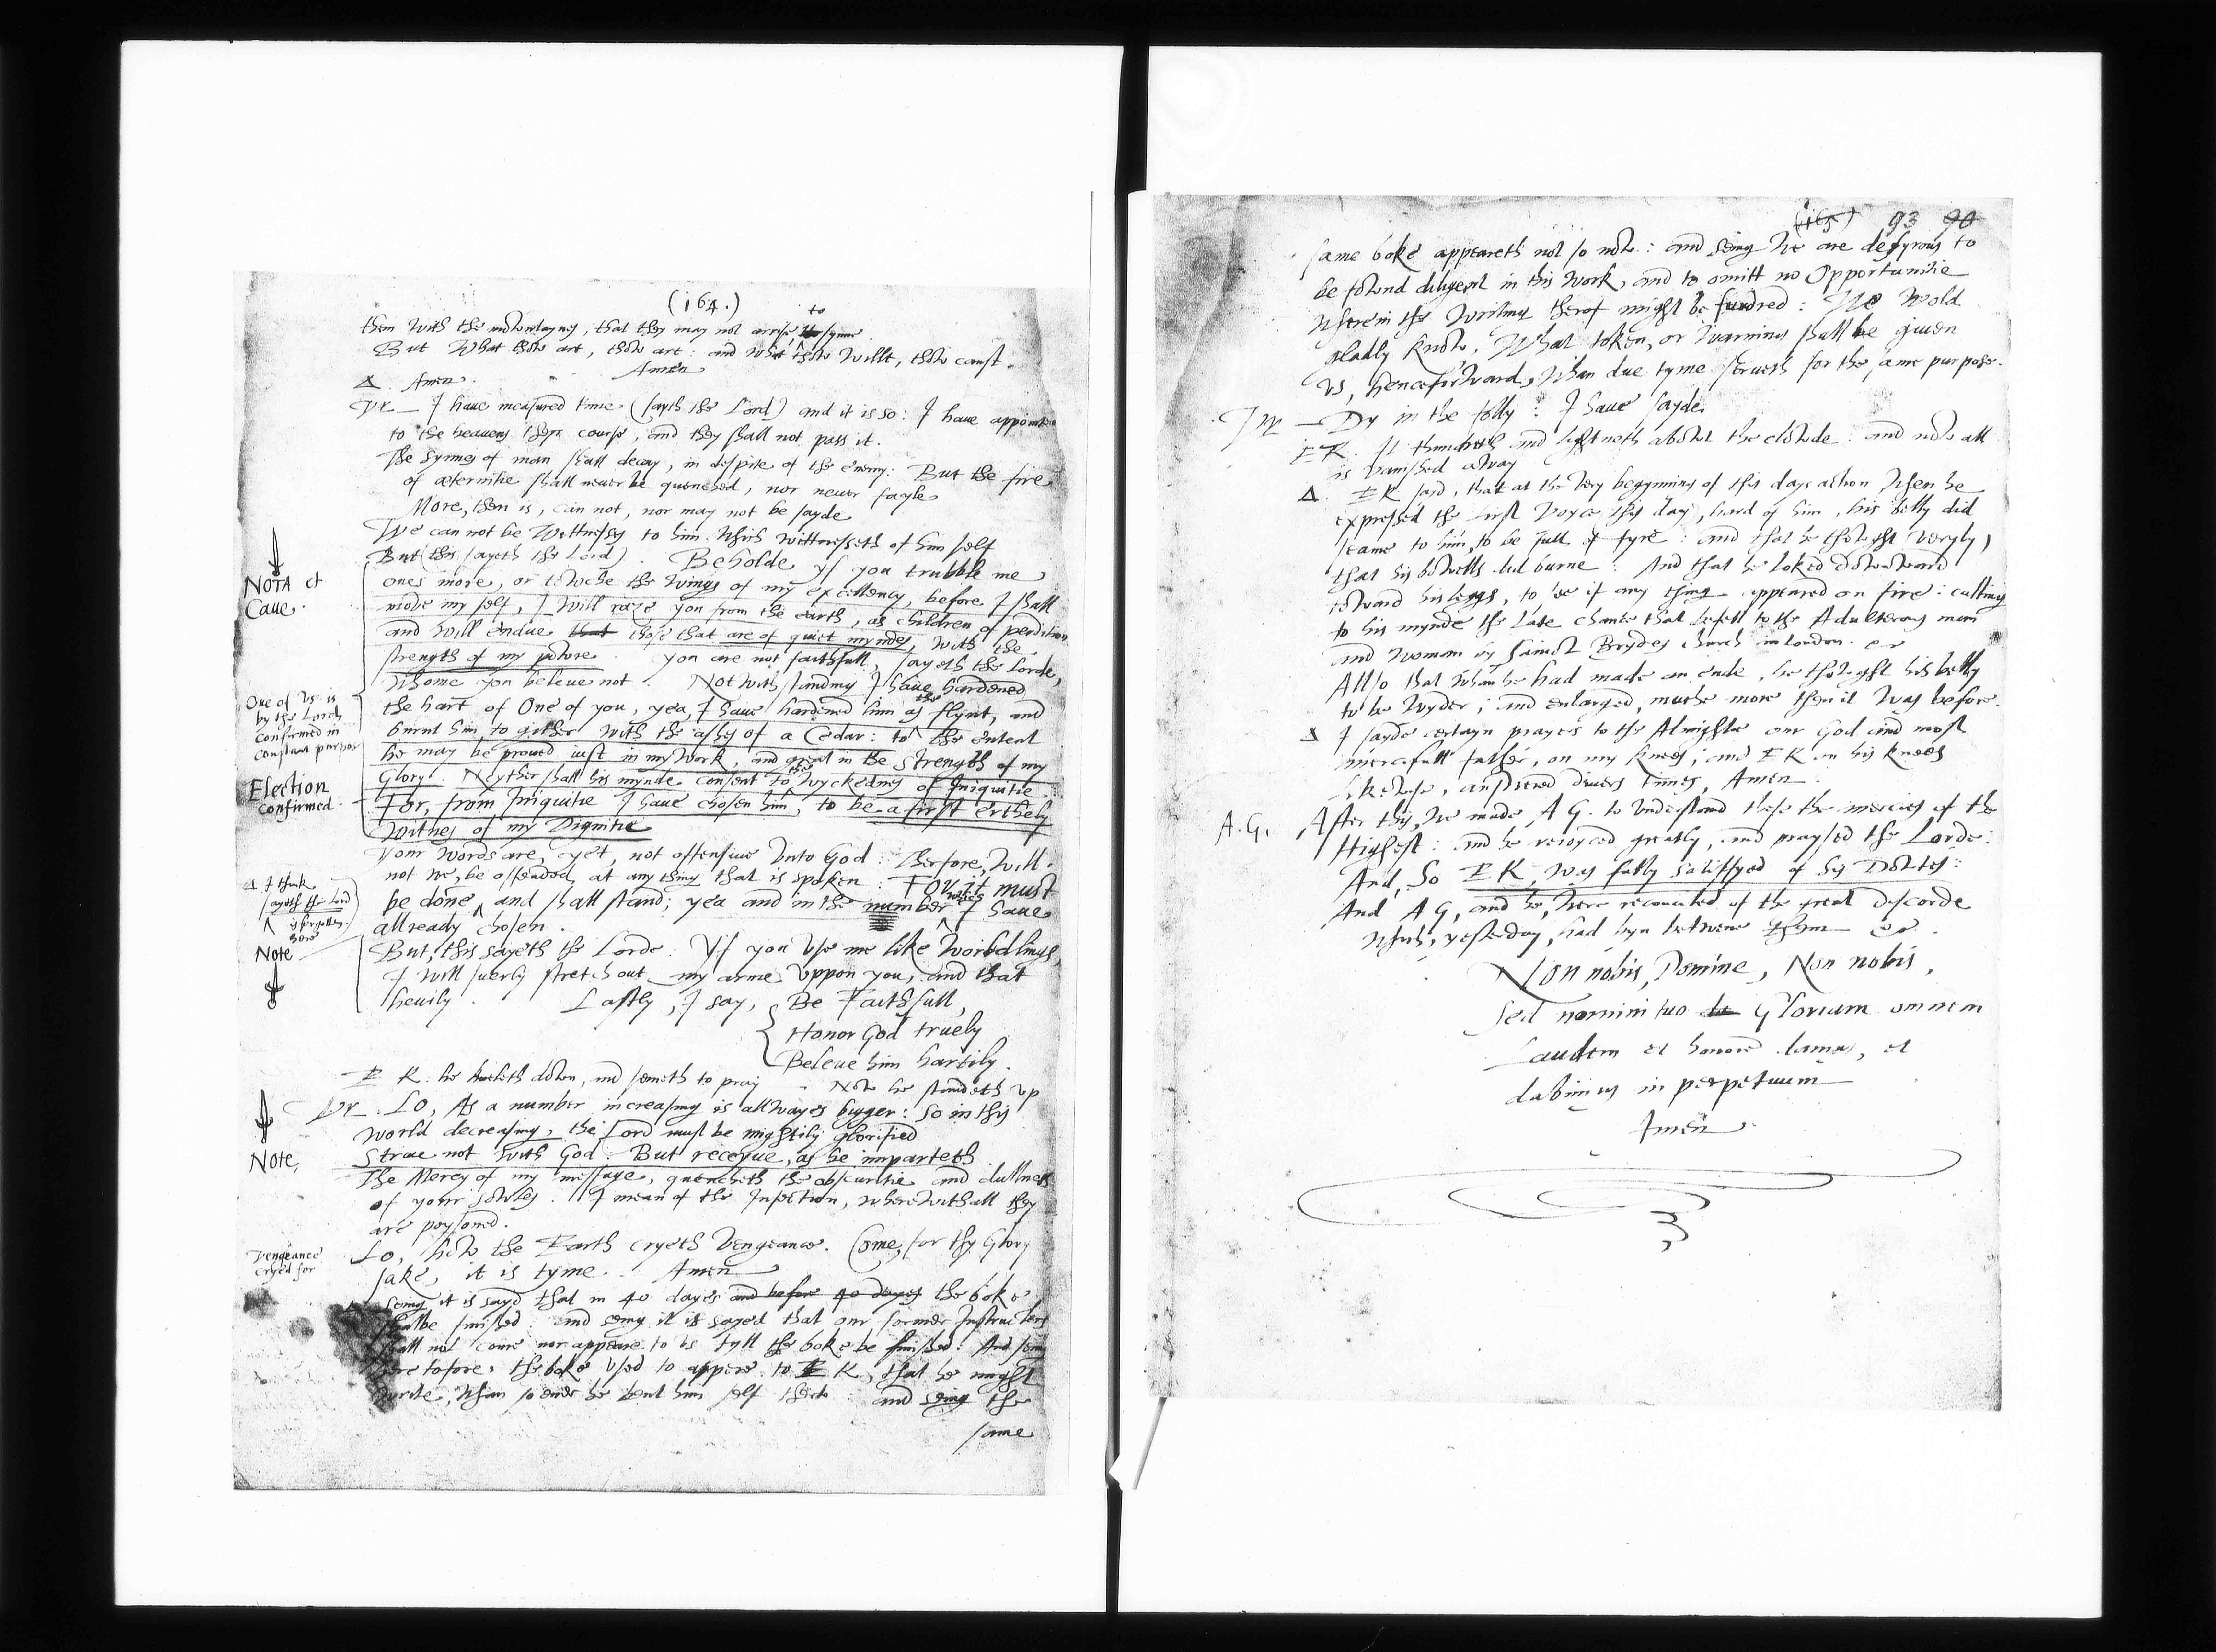 (164.)
them with the mowntaynes, that they may not arrise to synne.
But What thow art, thow art: and what thow willt, thow canst.
Amen
Δ. Amen.
Ur_ I haue measured time (sayth the Lord) and it is so: I haue appointed
to the heavens theyr course, and they shall not pass it.
The synnes of man shall decay, in despite of the enemy: But the fire
of æternitie shall never be quenched, nor never fayle
More, then is, can not, nor may not be sayde
We can not be Wittnesses to him which wittnesseth of him self
But (this sayeth the Lord). Beholde yf you trubble me
ones more, or towche the wings of my excellency, before I shall
move my self, I will raze you from the earth, as children of perdition
and will endue that those that are of quiet myndes, with the
strength of my powre. you are not faithfull, sayeth the Lorde,
whome you beleve not. Notwithstanding I haue hardened
the hart of One of you, yea, I haue hardened him as the flynt, and
burnt him to gither with the ashes of a Cedar: to the entent
he may be proved iust in my work, and great in the Strength of my
Glory. Neyther shall his mynde consent to the wyckednes of Iniquitie
For, from Iniquitie I haue chosen him, to be a first erthely
Witnes of my Dignitie
Your words are, yet, not offensive unto God: Therfore, will
not we, be offended, at any thing that is spoken: For it must
be done, and shall stand; yea and in the number which I haue
allready chosen.
But, this sayeth the Lorde: Yf you vse me like worldlings,
I will suerly stretch out my arme uppon you, and that
heuily. Lastly, I say, Be Faithfull,
Honor God truely
Beleue him hartily.
NOTA et
Caue.
One of us is
by the Lord
confirmed in
constant purpose
Election
confirmed.
Δ I think
sayeth the Lord
is forgotten
here
Note
E K. he kneleth down, and semeth to pray - Now he standeth up
Ur. LO, As a number increasing is allwayes bigger: So in this
world decreasing, the Lord must be mightily glorified
Striue not with God: But receyue, as he imparteth
The Mercy of my message, quencheth the obscuritie and dullnes
of your sowles. I mean of the Infection, wherewithall they
are poysoned.
Lo, how the Earth cryeth vengeance. Come, for thy Glory
sake, it is tyme. Amen
Note,
Vengeance
cryed for
seing it is sayd that in 40 dayes and before 40 dayes the boke
shalbe finished: and seing it is sayed that our former Instructors
shall not come nor appeare to us tyll the boke be finished: And seing
here tofore, the boke vsed to appere to E K, that he might
write, whan so ever he bent him self therto: and seing the
same
(165) 93 90
same boke appeareth not so now: and seing we are desyrous to
be fownd diligent in this work, and to omitt no Opportunitie
wherein the writing therof might be furdred: We wold
gladly know, What token, or warning shall be given
us, henceforward, whan due tyme serveth for the same purpose.
— Dy in the folly: I haue sayde.
E K. It thundreth and lightneth abowt the clowde: and now all
is vanished away
Δ. E K sayd, that at the very begynning of this days action when he
expressed the first voyce this day, hard of him, his belly did
seame to him, to be full of fyre: and that he thowght veryly,
that his bowells did burne: And that he loked downward
toward his leggs, to see if any thing appeared on fire: calling
to his mynde the late chance that befell to the Adulterous man
and woman by Sainct Brydes church in London. &c
Allso that whan he had made an ende, he thowght his belly
to be wyder, and enlarged, muche more then it was before.
Δ I sayde certayn prayers to the Almightie our God and most
mercifull father, on my knees; and E K on his knees
likewise, answered divers times, Amen
A.G. After this, we made A G. to vnderstand these the mercies of the
Highest: and he reioyced greatly, and praysed the Lorde:
And, So E K, was fully satisfyed of his Dowtes:
And A G, and he, were reconciled of the great discorde
which, yesterday, had byn betwene them &c.
Non nobis, Domine, Non nobis,
Sed nomini tuo da Gloriam omnem
Laudem et honorē damus, et
dabimus in perpetuum
Amen